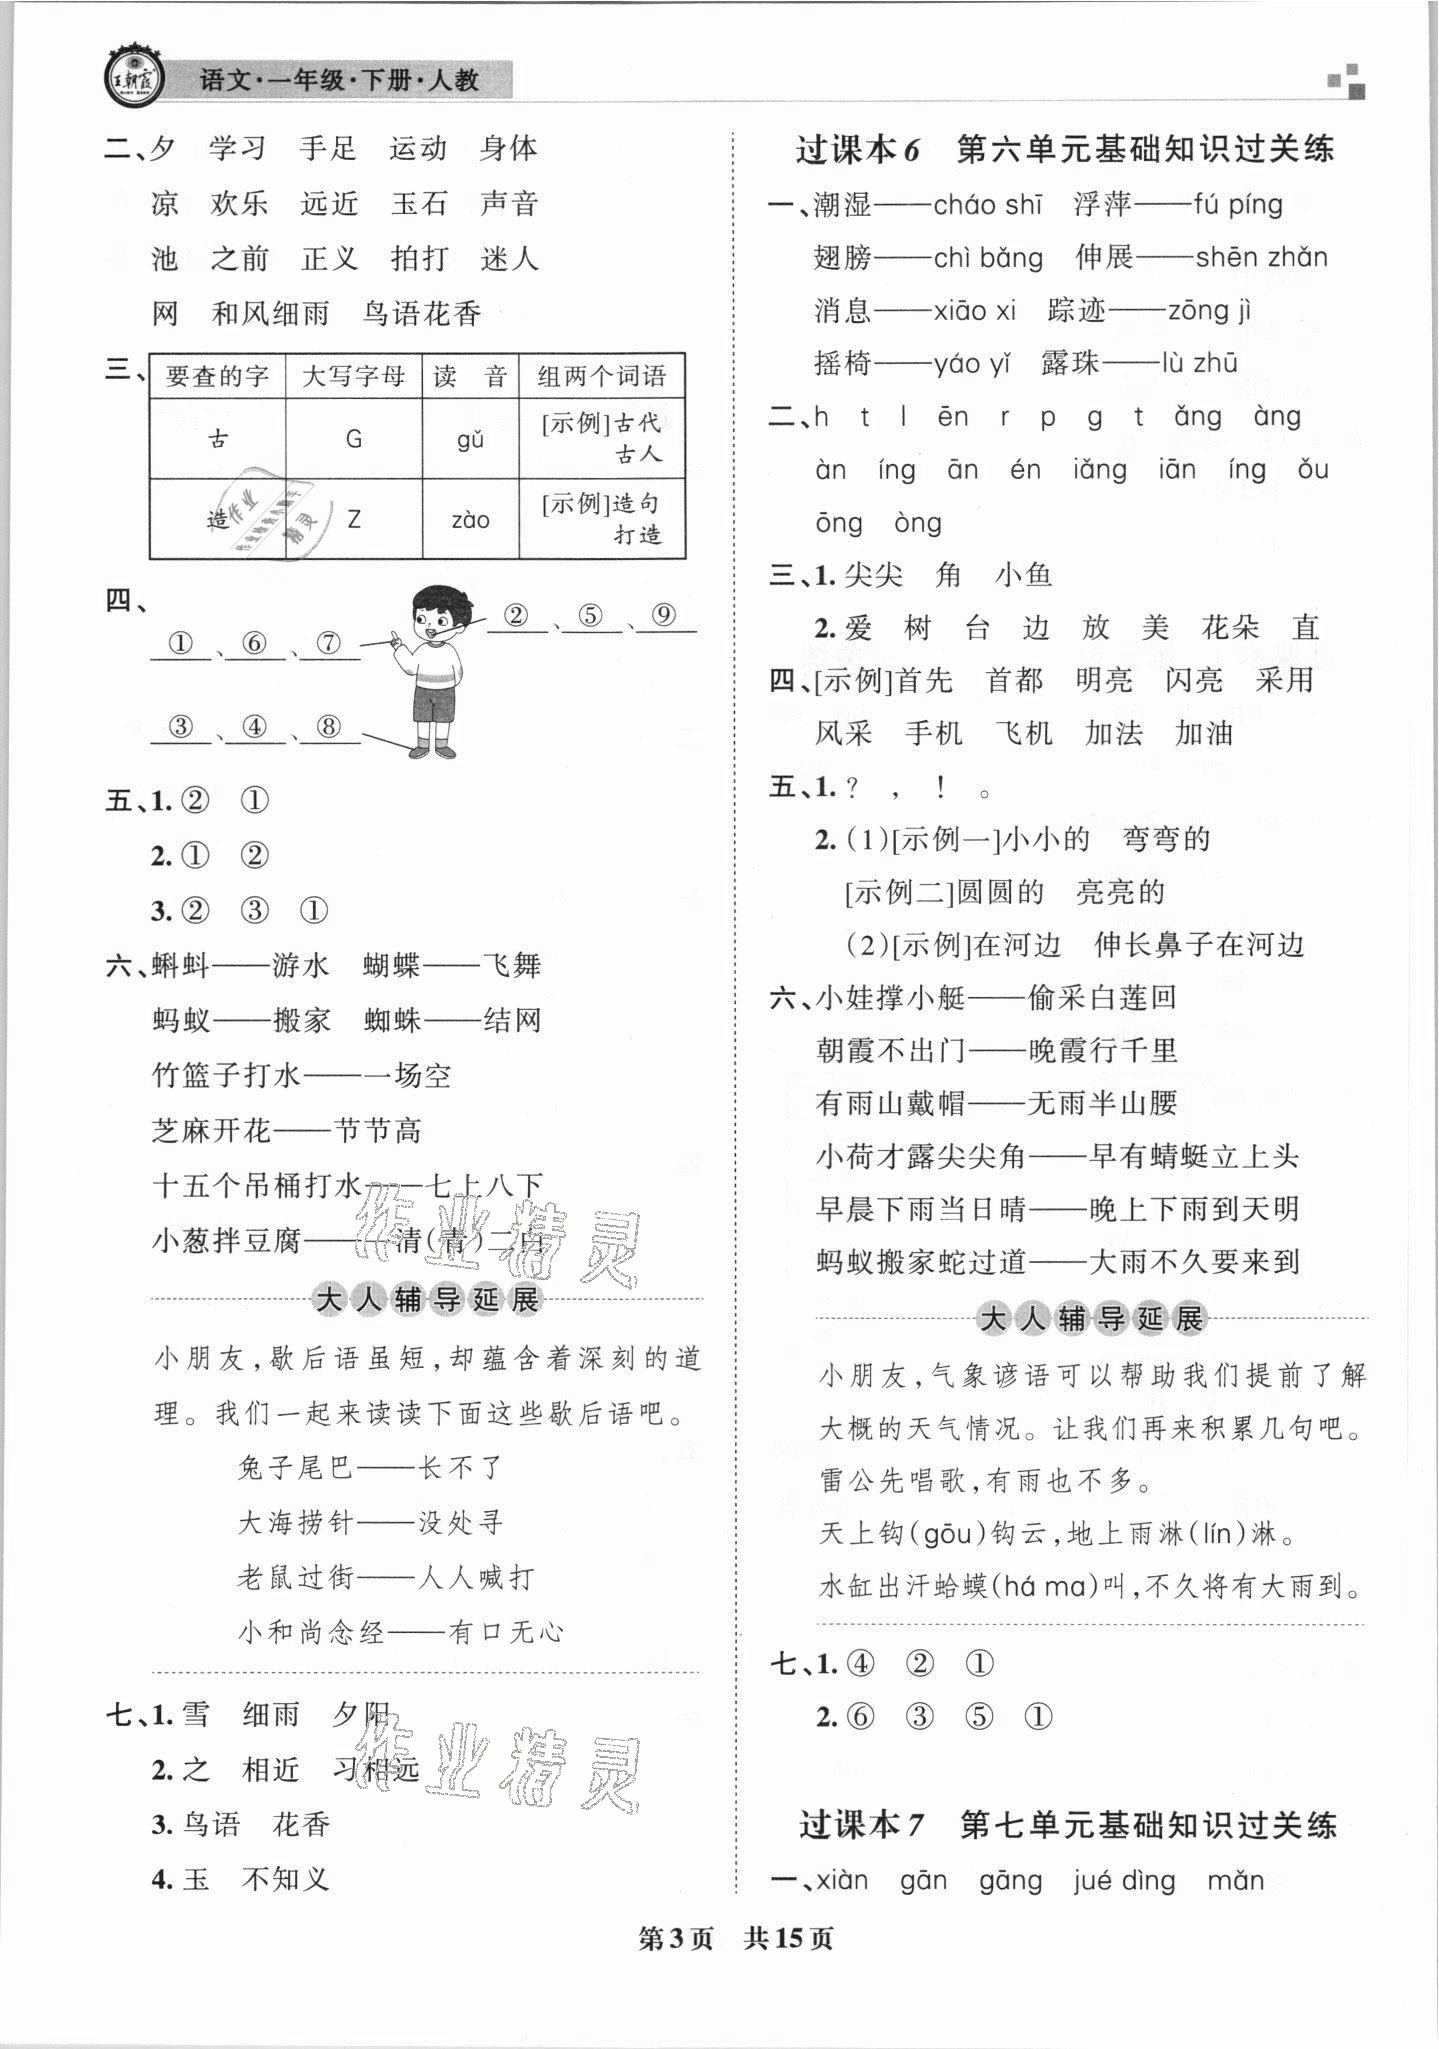 王朝霞
语文·一年级·下册·人教
二、夕 学习 手足 运动 身体
凉 欢乐 远近 玉石 声音
池 之前 正义 拍打 迷人
网 和风细雨 鸟语花香
三、
要查的字 大写字母 读音 组两个词语
古 G gǔ [示例]古代
古人
造 Z zào [示例]造句
打造
四、
② 、 ⑤ 、 ⑨
① 、 ⑥ 、 ⑦
③ 、 ④ 、 ⑧
五、1. ② ①
2. ① ②
3. ② ③ ①
六、蝌蚪——游水 蝴蝶——飞舞
蚂蚁——搬家 蜘蛛——结网
竹篮子打水——一场空
芝麻开花——节节高
十五个吊桶打水——七上八下
小葱拌豆腐——一清(青)二白
大人辅导延展
小朋友,歇后语虽短,却蕴含着深刻的道
理。我们一起来读读下面这些歇后语吧。
兔子尾巴——长不了
大海捞针——没处寻
老鼠过街——人人喊打
小和尚念经——有口无心
七、1. 雪 细雨 夕阳
2. 之 相近 习相远
3. 鸟语 花香
4. 玉 不知义
过课本6 第六单元基础知识过关练
一、潮湿——cháo shī 浮萍——fú píng
翅膀——chì bǎng 伸展——shēn zhǎn
消息——xiāo xi 踪迹——zōng jì
摇椅——yáo yǐ 露珠——lù zhū
二、h t l ēn r p g t ǎng àng
àn íng ān én iǎng iān íng ǒu
ōng òng
三、1. 尖尖 角 小鱼
2. 爱 树 台 边 放 美 花朵 直
四、[示例]首先 首都 明亮 闪亮 采用
风采 手机 飞机 加法 加油
五、1. ? , ! 。
2. (1)[示例一]小小的 弯弯的
[示例二]圆圆的 亮亮的
(2)[示例]在河边 伸长鼻子在河边
六、小娃撑小艇——偷采白莲回
朝霞不出门——晚霞行千里
有雨山戴帽——无雨半山腰
小荷才露尖尖角——早有蜻蜓立上头
早晨下雨当日晴——晚上下雨到天明
蚂蚁搬家蛇过道——大雨不久要来到
大人辅导延展
小朋友,气象谚语可以帮助我们提前了解
大概的天气情况。让我们再来积累几句吧。
雷公先唱歌,有雨也不多。
天上钩(gōu)钩云,地上雨淋(lín)淋。
水缸出汗蛤蟆(há ma)叫,不久将有大雨到。
七、1. ④ ② ①
2. ⑥ ③ ⑤ ①
过课本7 第七单元基础知识过关练
一、xiàn gān gāng jué dìng mǎn
第3页 共15页
作业精灵
作业精灵